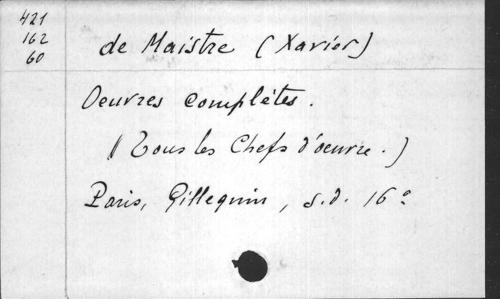 421
162
60
de Maistre (Xavier)
Oeuvres complètes.
(Tous les Chefs d'oeuvre.)
Paris, Gillequin, s.d. 16º